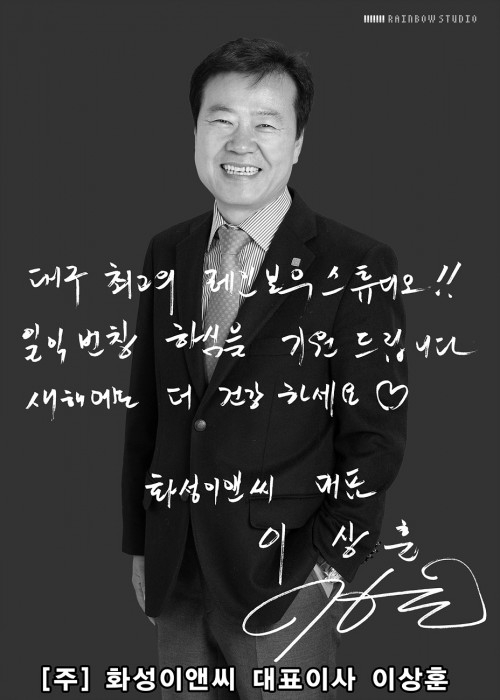 RAINBOW STUDIO
대구 최고의 레인보우 스튜디오!!
일익 번창 하심을 기원 드립니다
새해에도 더 건강 하세요 ♡
화성이앤씨 대표
이 상 훈
[주] 화성이앤씨 대표이사 이상훈